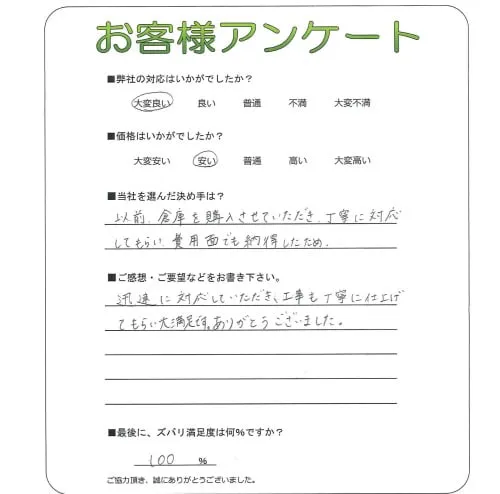 お客様アンケート
■弊社の対応はいかがでしたか？
大変良い 良い 普通 不満 大変不満
■価格はいかがでしたか？
大変安い 安い 普通 高い 大変高い
■当社を選んだ決め手は？
以前、倉庫を購入させていただき、丁寧に対応
してもらい、費用面でも納得したため。
■ご感想・ご要望などをお書き下さい。
迅速に対応していただき、工事も丁寧に仕上げ
てもらい大満足です。ありがとうございました。
■最後に、ズバリ満足度は何%ですか？
100 %
ご協力頂き、誠にありがとうございました。